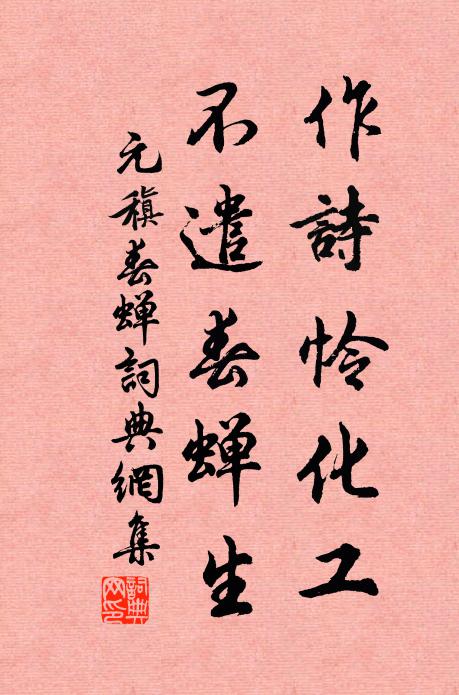 作詩怜化工
不遣春蟬生
元稹春蟬詞典網集
詞典網印